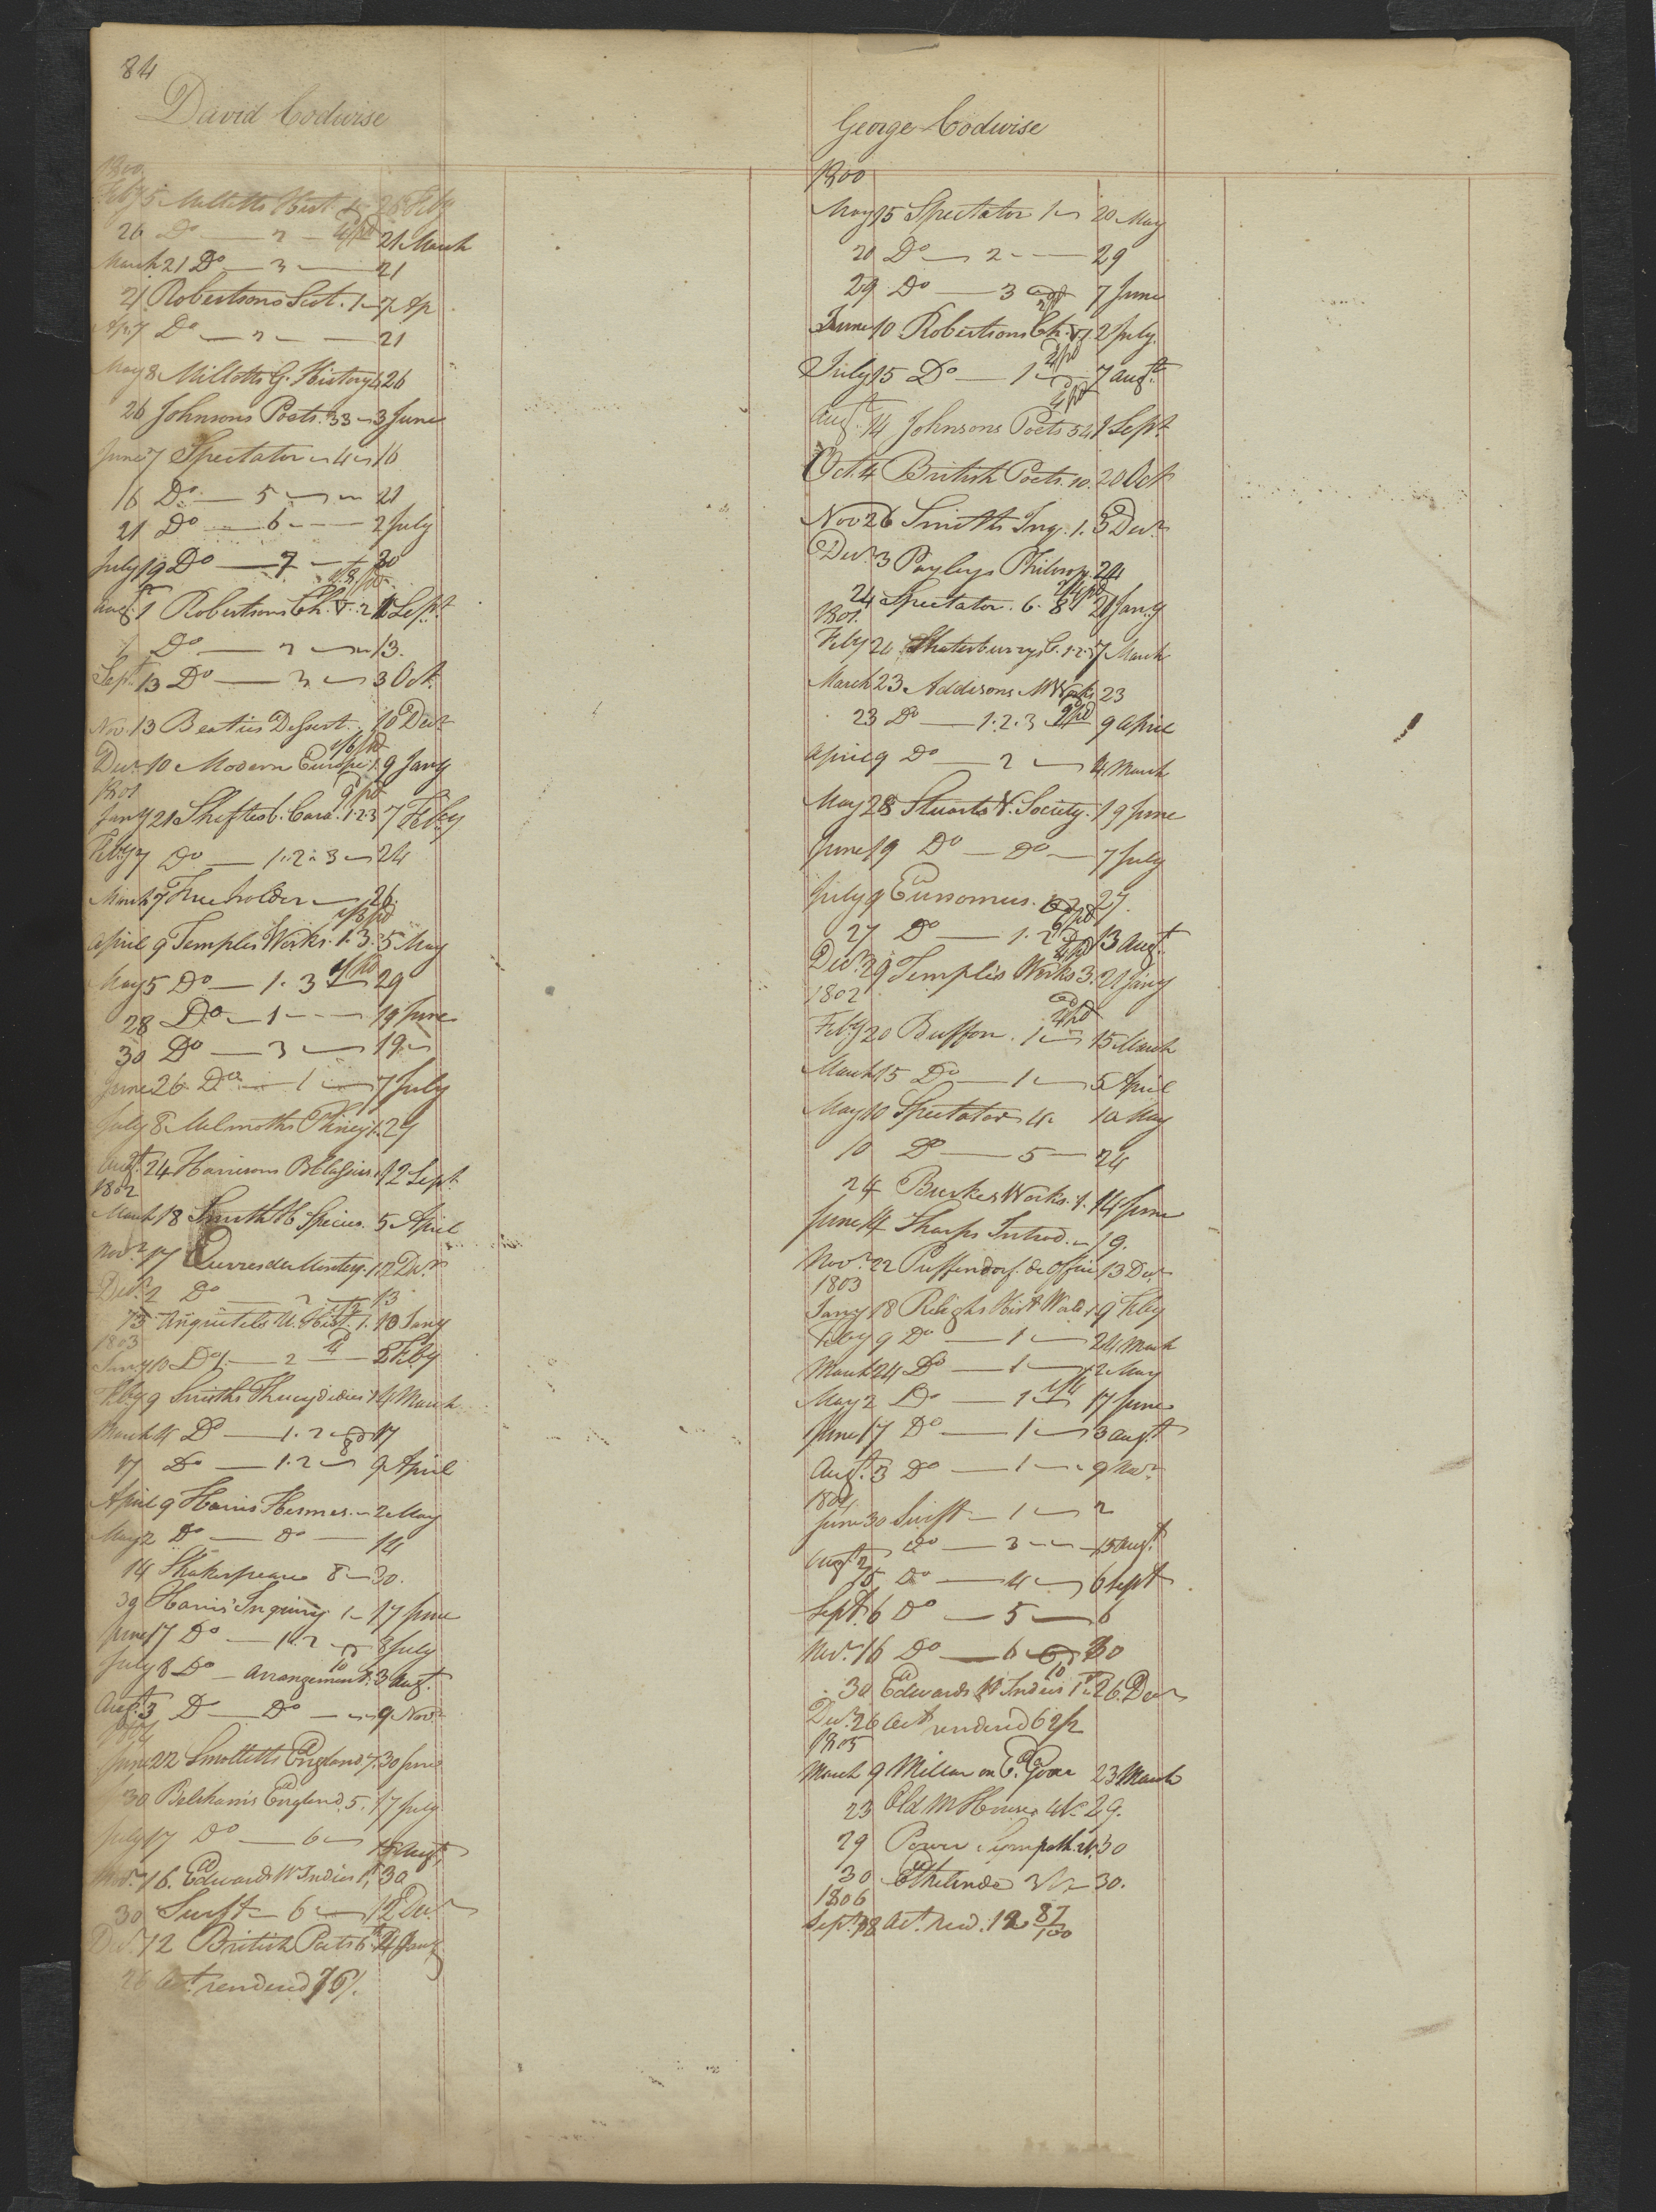 84
David Codwise
1800
Feby 5 Millotts Hist. 1 26 Feby
26 Do — 2 — 21 March
March 21 Do — 3 — 21
21 Robertsons Scot. 1 — 7 Ap
Ap. 7 Do — 2 — 21
May 8 Millotts G. History 4 26
26 Johnsons Poets. 33 — 3 June
June 7 Spectator — 4 — 16
16 Do — 5 — 21
21 Do — 6 — 2 July
July 19 Do — 7 — 30
Augt. 1 Robertsons Ch. V. 2 Sept
Do — 2 — 13.
Sept 13 Do — 3 — 3 Oct.
Nov. 13 Beaties Dessert. 10 Decr
1/6 pd
Decr 10 Modern Europe 1. 9 Jany
1801 9 pd
Jany 21 Shaftesb. Cara. 1.2.3 7 Feby
Feby 7 Do — 1.2.3 — 24
March 7 Freeholder — 26.
1/8 pd
April 9 Temples Works. 1.3. 5 May
May 5 Do — 1. 3 29
28 Do — 1 — 19 June
30 Do — 3 — 19
June 26 Do — 1 — 7 July
July 8 Melmoths Pliney 1. 29
Augt. 24 Harrisons B Classics. 12 Sept.
1802
March 18 Smith H Species. 5 April
Novr 17 Ouvres de Montesq. 1. 2 Decr
Decr. 2 Do — 2 — 13
13 Anquetils U. Hist. 1. 10 Jany
1803
Jany 10 Do — 2 — 8 Feby
Feby 9 Smiths Thucydidies 1 4 March
March 4 Do — 1.2 — 17
17 Do — 1.2 — 9 April
April 9 Harris Hermes. — 2 May
May 2 Do — Do — 14
14 Shakespeare 8 — 30.
30 Harris' Inquiry 1 — 17 June
June 17 Do — 1.2 — 8 July
July 8 Do — Arrangement. 3 Augt.
Augt. 3 Do — Do — 9 Novr
1804
June 22 Smolletts England 7. 30 June
30 Belsham's England. 5. 17 July
July 17 Do — 6 — Augt.
Novr. 16. Edwards W Indies 1. 30
30 Swift — 6 — 12 Decr
Decr. 12 British Poets 6. 24 Jany
26 Act. rendered 76/.
George Codwise
1800
May 15 Spectator 1 — 20 May
20 Do — 2 — 29
29 Do — 3 7 June
June 10 Robertsons Ch. V 1. 2 July.
July 15 Do — 1 — 7 augt.
Augt. 14 Johnsons Poets 54 1 Sept.
Oct. 4 British Poets. 10. 20 Oct
Nov 26 Smiths Inq. 1. 3 Decr
Decr. 3 Payleys Philosop. 24
24 Spectator. 6. 8 21 Jany
1801.
Feby 24 Shatesburrys C. 1.2.3 7 March
March 23 Addisons M Works 23
23 Do — 1.2.3 9 pd 9 April
April 9 Do — 2 — 4 March
May 28 Stuarts V. Society. 19 June
June 19 Do — Do — 7 July
July 9 Eunomus. 27.
27 Do — 1.2 13 Augt.
Decr. 29 Temple's Works 3. 21 Jany
1802
Feby 20 Buffon. 1 — 15 March
March 15 Do — 1 — 5 April
May 10 Spectator 4. 10 May
10 Do — 5 — 24
24 Burkes Works. 1. 14 June
June 14 Sharps Introd. — 19.
Novr. 22 Puffendorf. de Offici 13 Decr
1803
Jany 18 Releighs Hist World 1 9 Feby
Feby 9 Do — 1 — 24 March
March 24 Do — 1 — 2 May
May 2 Do — 1 — 17 June
June 17 Do — 1 — 3 augt
Augt. 3 Do — 1 — 9 Novr
1804
June 30 Swift — 1 — 2
Augt. 2 Do — 3 — 15 Augt.
15 Do — 4 — 6 Sept
Sept. 6 Do — 5 — 6
Novr. 16 Do — 6 — 30
30 Edwards W Indies 1. 26 Decr
Decr. 26 Act rendered 62/
1805
March 9 Millar on E. Gover 23 March
23 Old M House 4 Vs 29.
29 Power Sympath. 30
30 Ethelinde 30.
1806
Sept. 18 Act. rend. 12 87/100